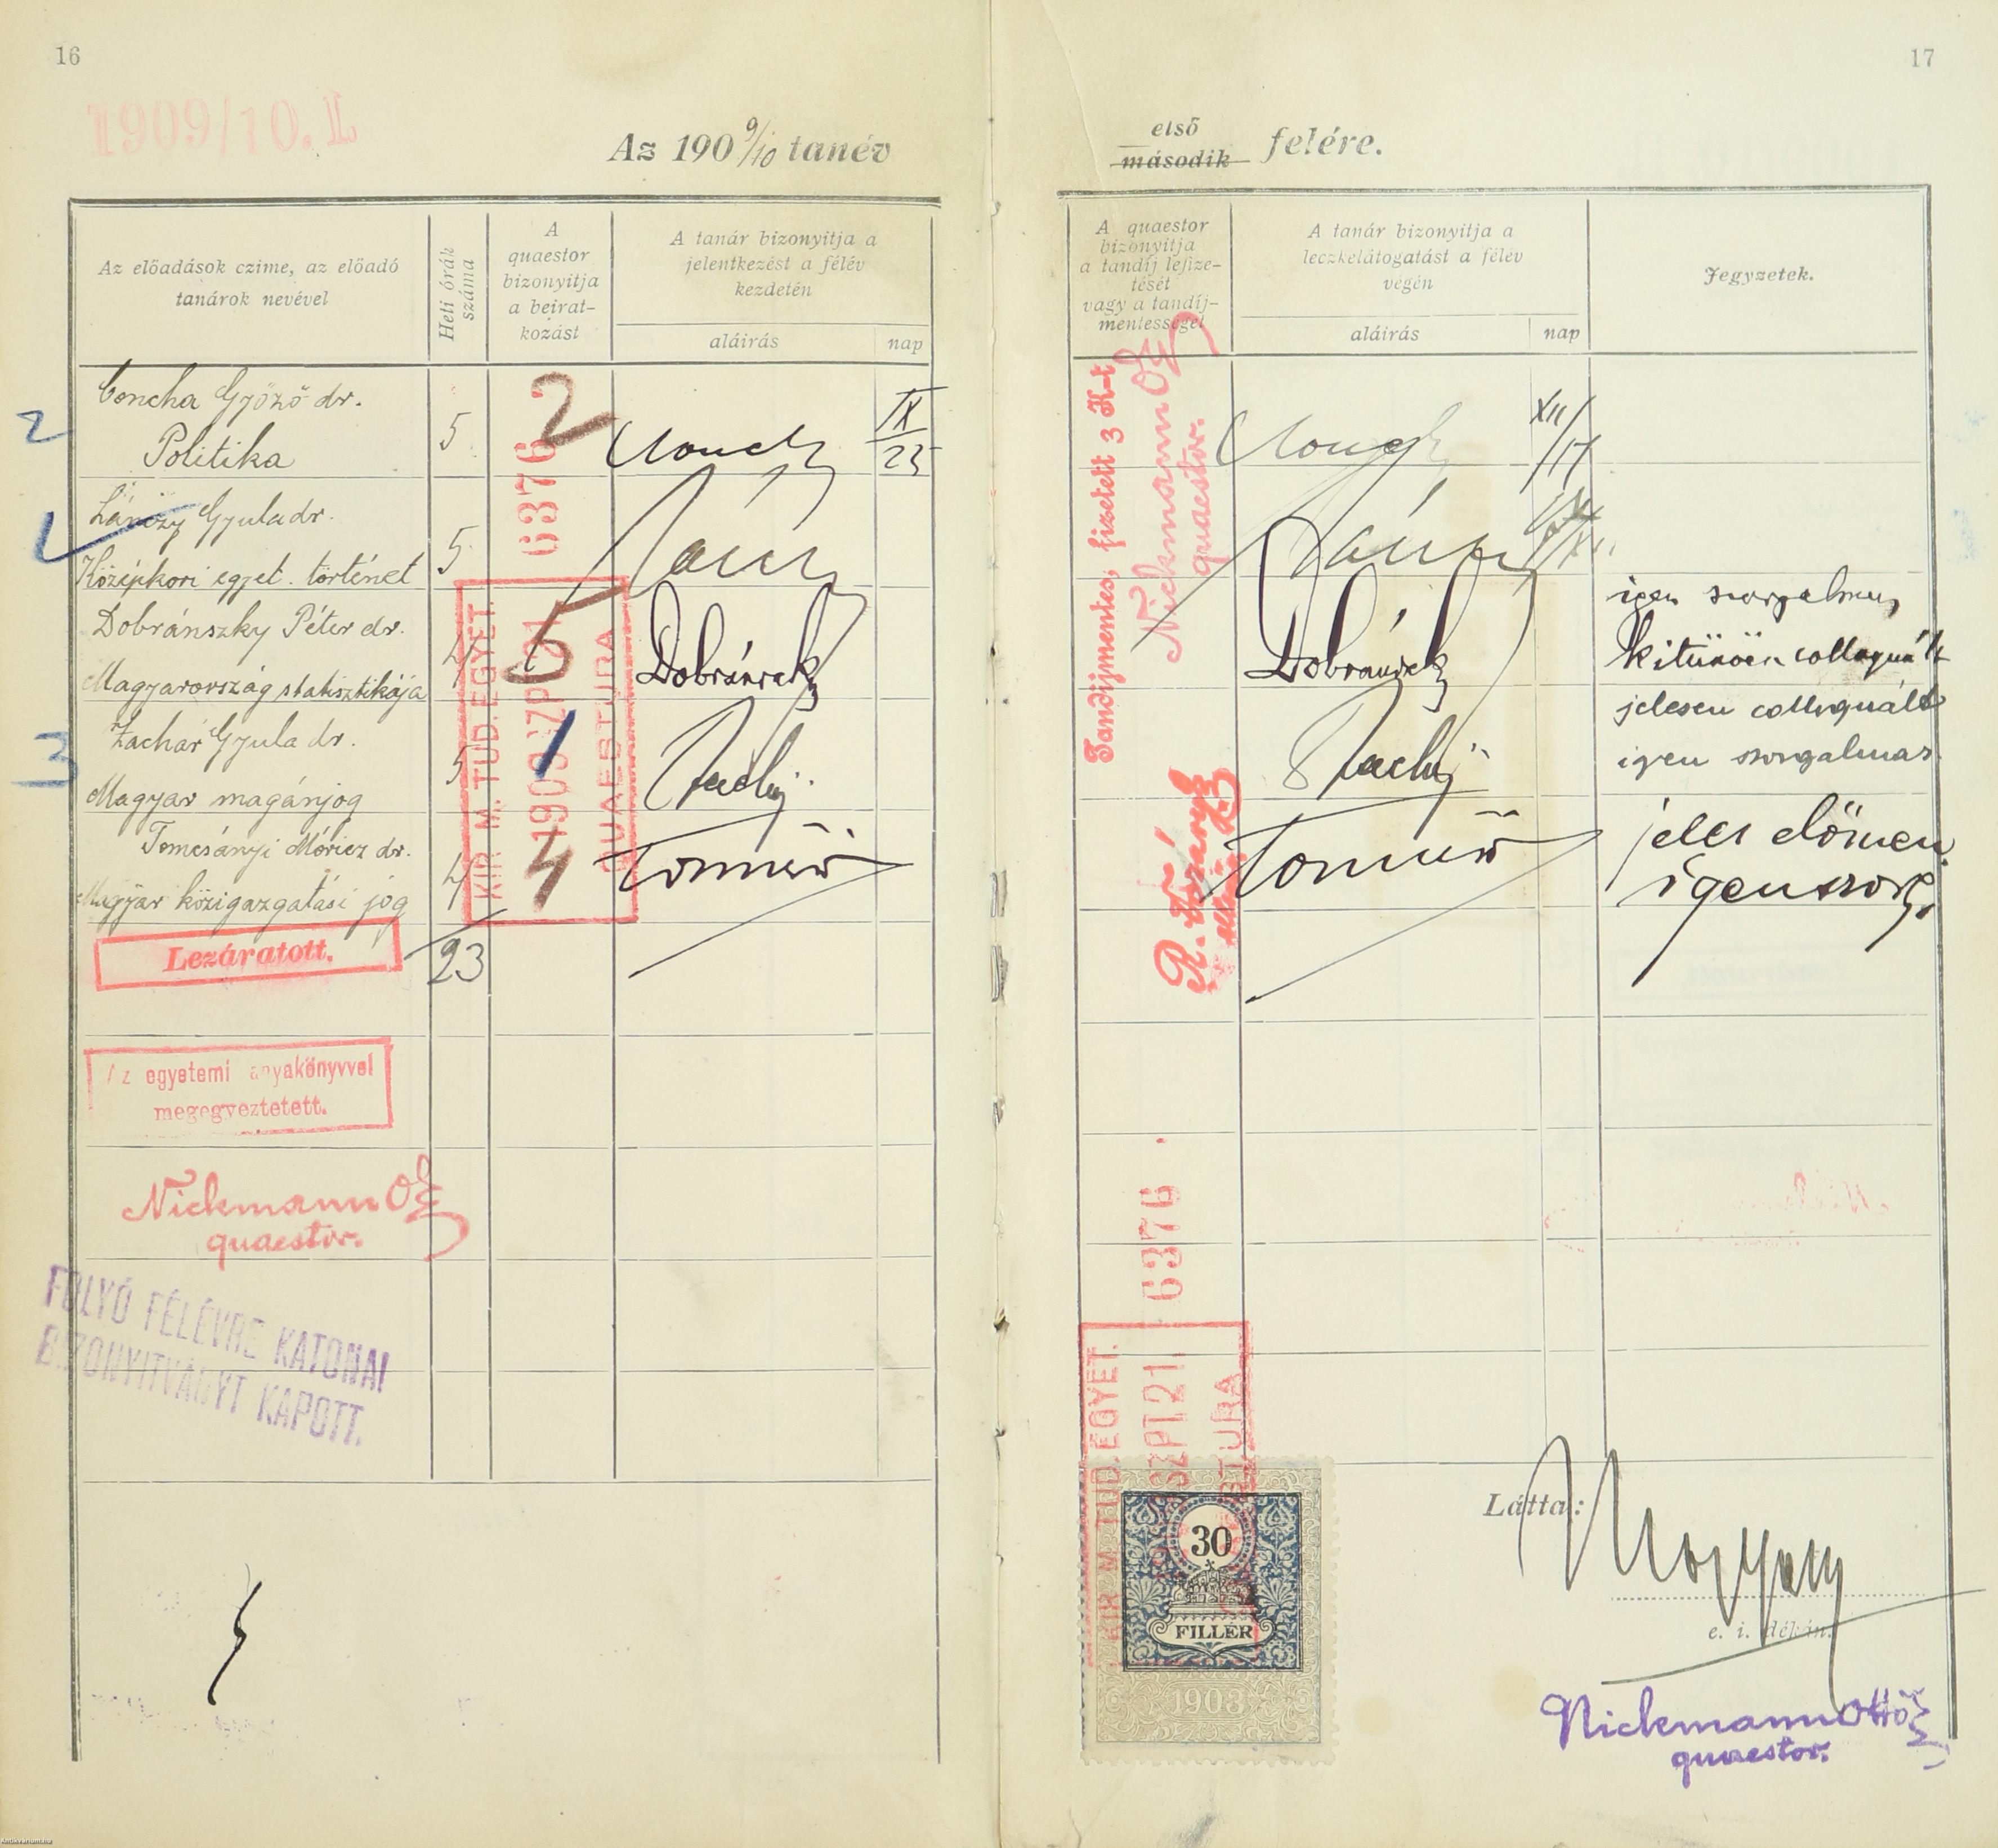 16
1909/10.I.
Az 190 9/10 tanév
Az előadások czime, az előadó
tanárok nevével
Heti órák
száma
A
quaestor
bizonyitja
a beirat-
kozást
A tanár bizonyitja a
jelentkezést a félév
kezdetén
aláirás
nap
Concha Győző dr.
2
Politika
5
2
6376
IX
23
Lánczy Gyula dr.
5
Középkori egyet. történet
Dobránszky Péter dr.
4
Magyarország statisztikája
Dobránszky
Zachár Gyula dr.
3
5
Magyar magánjog
Tomcsányi Móricz dr.
4
Magyar közigazgatási jog
KIR. M. TUD. EGYET.
1909 SZPT 21
QUAESTURA
Lezáratott.
23
Az egyetemi anyakönyvvel
megegyeztetett.
Nickmann O
quaestor.
FOLYÓ FÉLÉVRE KATONAI
BIZONYITVÁNYT KAPOTT.
17
első
második
felére.
A quaestor
bizonyitja
a tandíj lefize-
tését
vagy a tandíj-
mentességet
A tanár bizonyitja a
leczkelátogatást a félév
végén
aláirás
nap
Jegyzetek.
Tandíjmentes, fizetett 3 K-t
Nickmann O
quaestor.
XII/17
Dobránszky
igen szorgalmas,
kitünöen collogvált
jelesen collogvált
igen szorgalmas.
jeles elömen.
igen szorg.
6376
KIR. M. TUD. EGYET.
SZPT 21
QUAESTURA
30
FILLÉR
1903
Látta:
e. i. dékán.
Nickmann Ottó
quaestor.
Antikvarium.hu